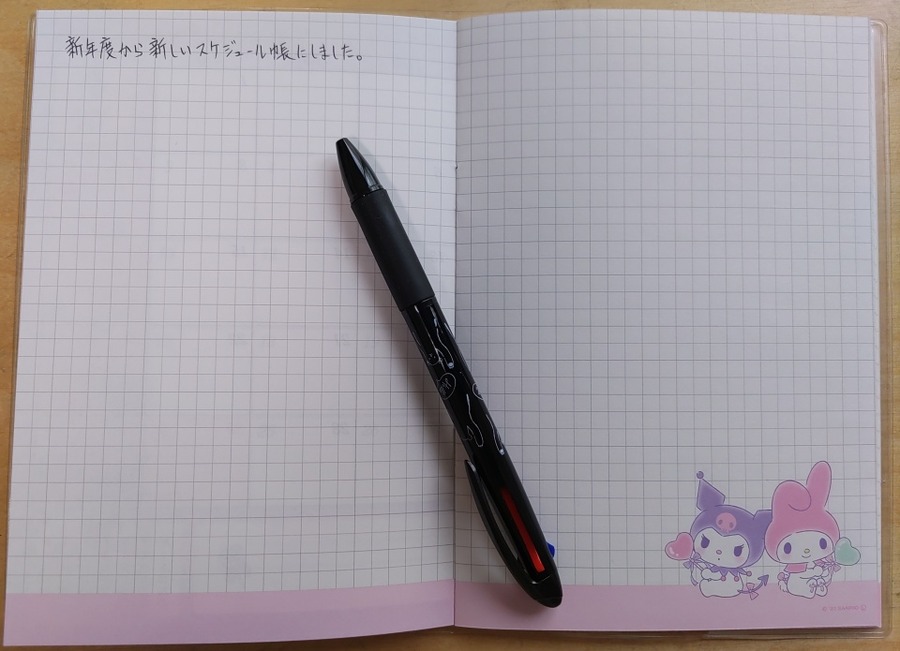 新年度から新しいスケジュール帳にしました。